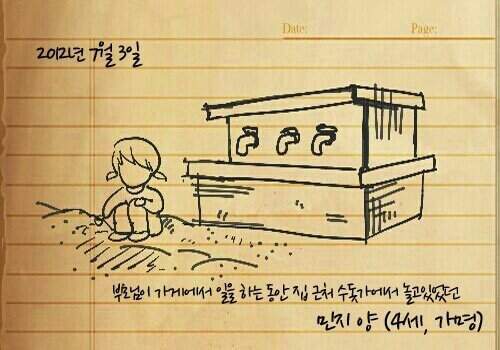 Date:
Page:
2012년 7월 3일
부모님이 가게에서 일을 하는 동안 집 근처 수돗가에서 놀고있었던
민지 양 (4세, 가명)